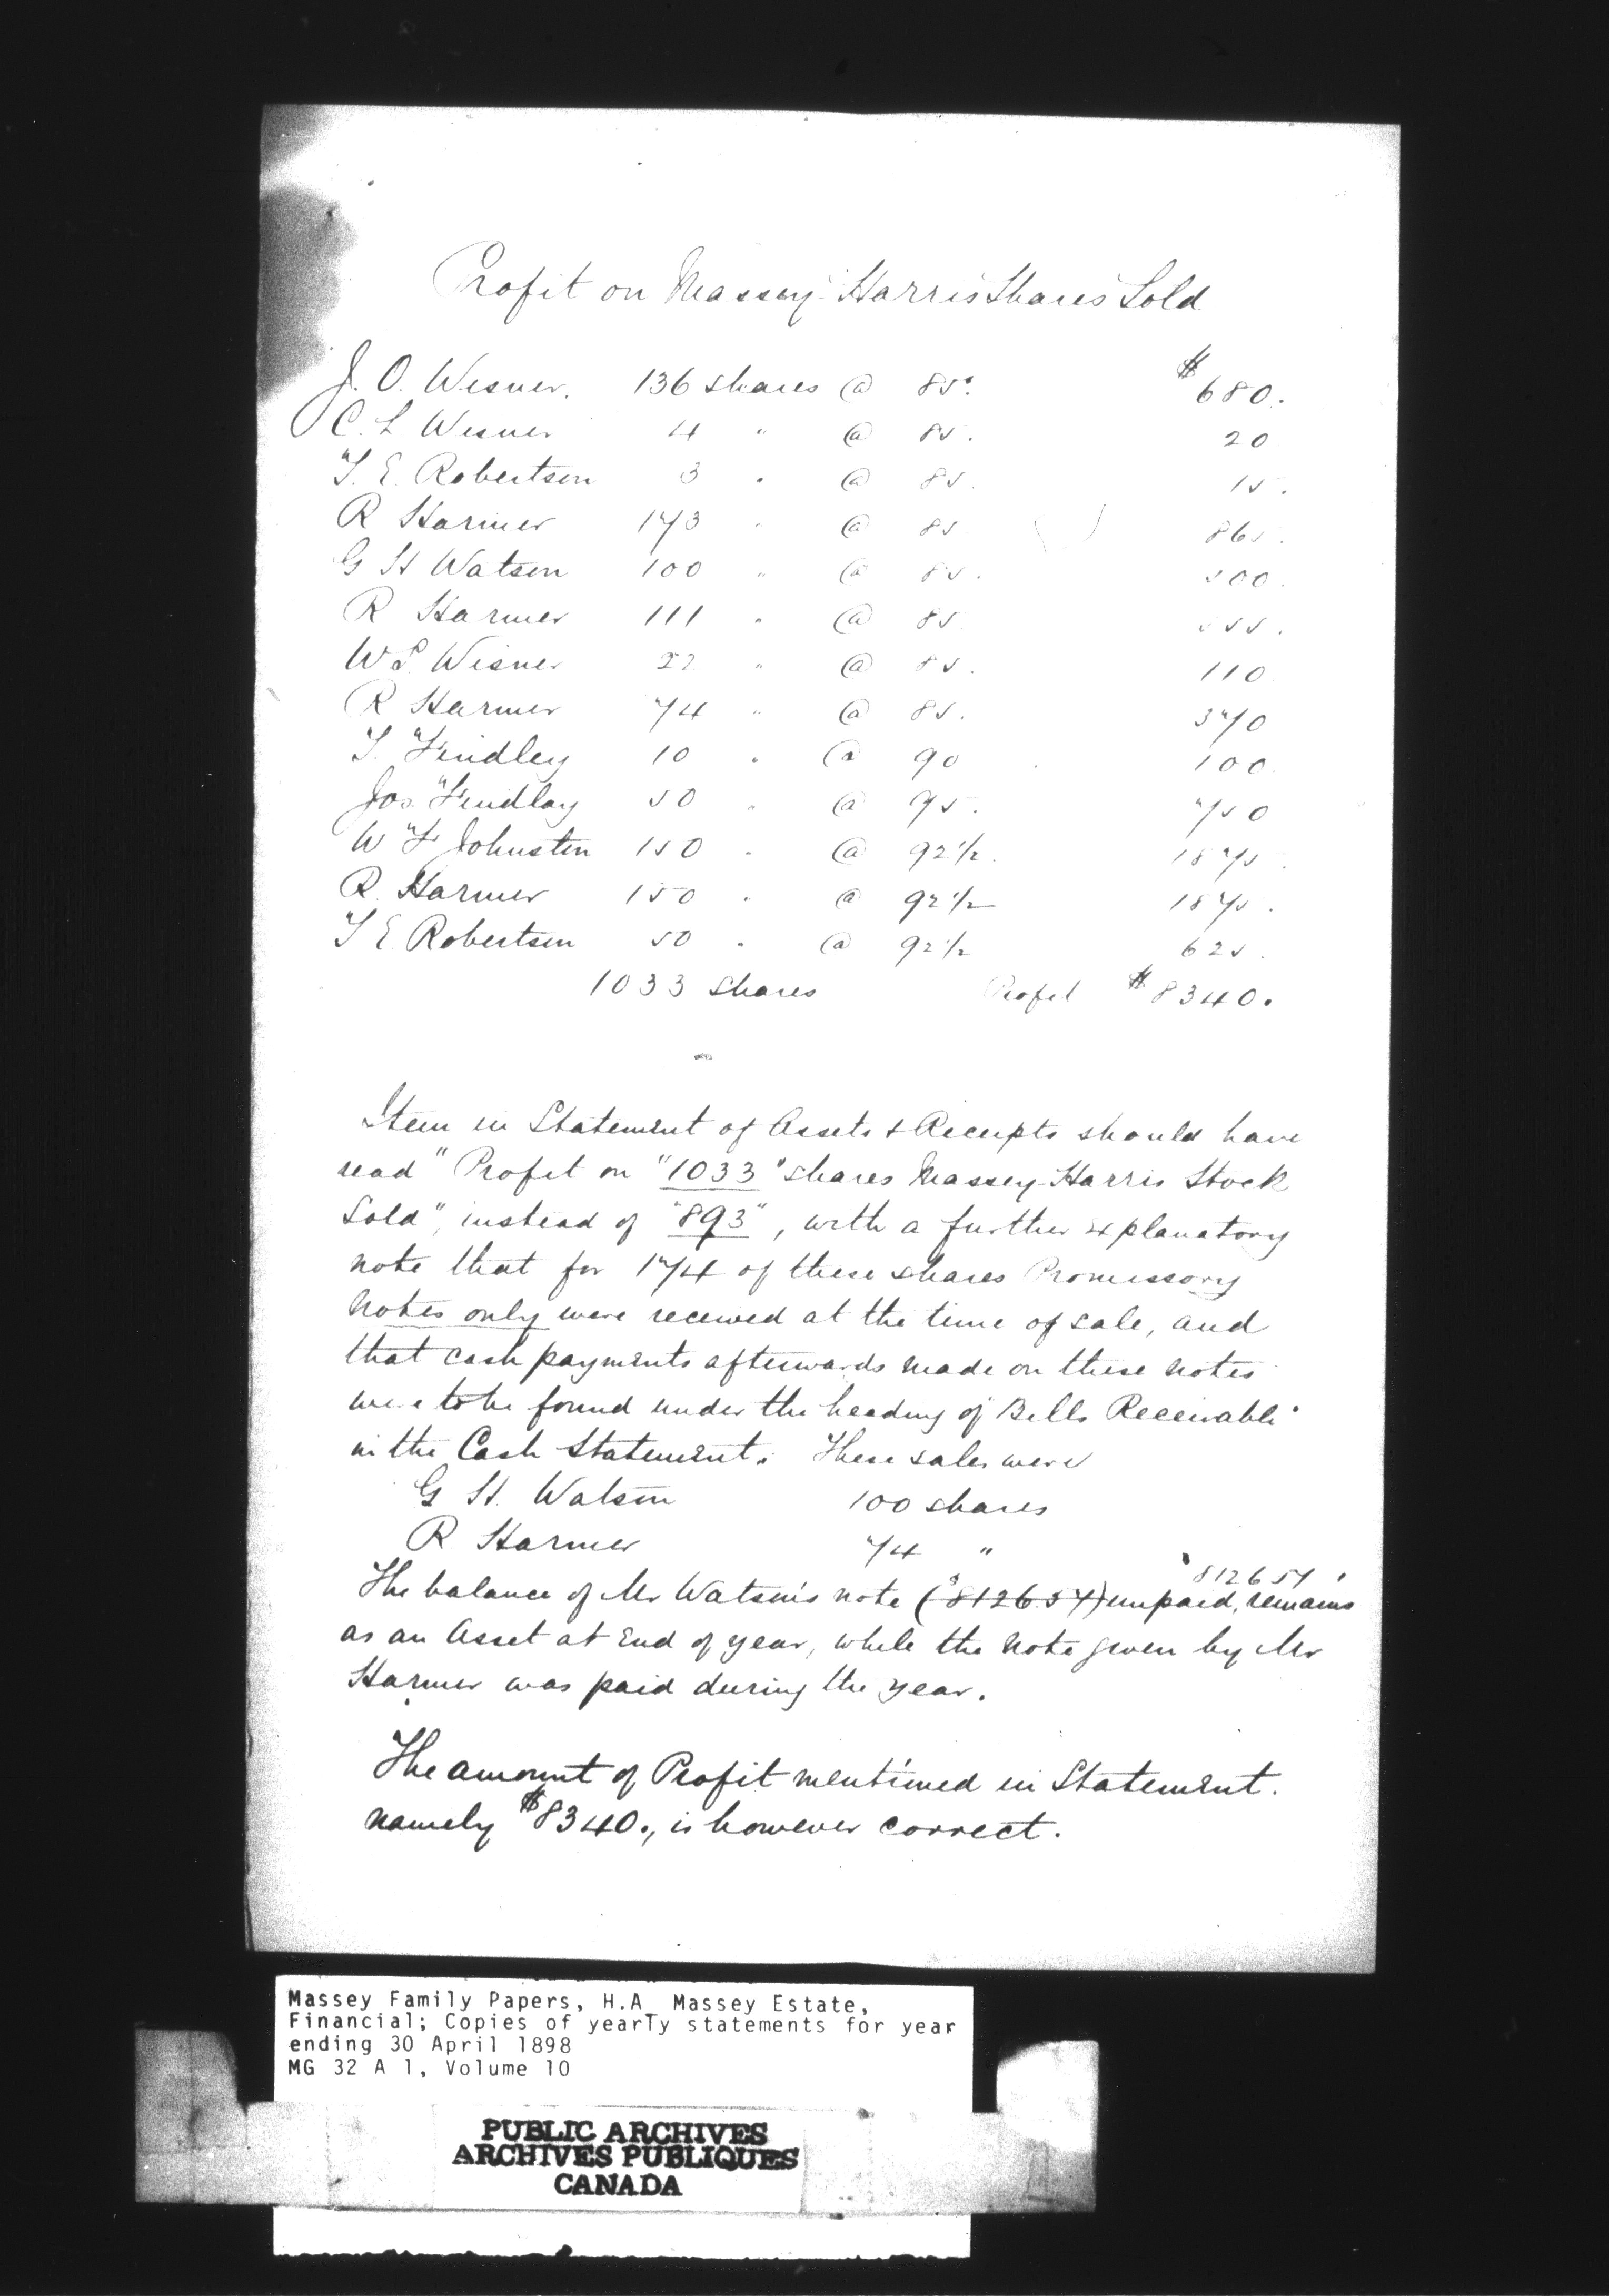 Profit on Massey-Harris Shares Sold
$
J. O. Wisner. 136 shares @ 85. 680.
C. L. Wisner 4 " @ 85. 20
T. E. Robertson 3 " @ 85. 15.
R Harmer 173 " @ 85 865.
G H Watson 100 " @ 85. 500.
R Harmer 111 " @ 85 555.
W S Wisner 22 " @ 85. 110
R Harmer 74 " @ 85. 370
T. Findley 10 " @ 90 100.
Jos. Findlay 50 " @ 95. 750
W F Johnston 150 " @ 92 1/2. 1875.
R. Harmer 150 " @ 92 1/2 1875.
T E. Robertson 50 " @ 92 1/2 625.
1033 shares Profit $8340.
Item in Statement of Assets & Receipts should have
read "Profit on "1033" shares Massey-Harris Stock
Sold", instead of "893", with a further explanatory
note that for 174 of these shares Promissory
Notes only were received at the time of sale, and
that cash payments afterwards made on these notes
were to be found under the heading of "Bills Receivable"
in the Cash Statement. These sales were
G H. Watson 100 shares
R Harmer 74 "
$8126.57,
The balance of Mr Watson's note ($8126.57) unpaid, remains
as an Asset at End of year, while the Note given by Mr
Harmer was paid during the year.
The amount of Profit mentioned in Statement.
namely $8340., is however correct.
Massey Family Papers, H.A. Massey Estate,
Financial; Copies of yearly statements for year
ending 30 April 1898
MG 32 A 1, Volume 10
PUBLIC ARCHIVES
ARCHIVES PUBLIQUES
CANADA